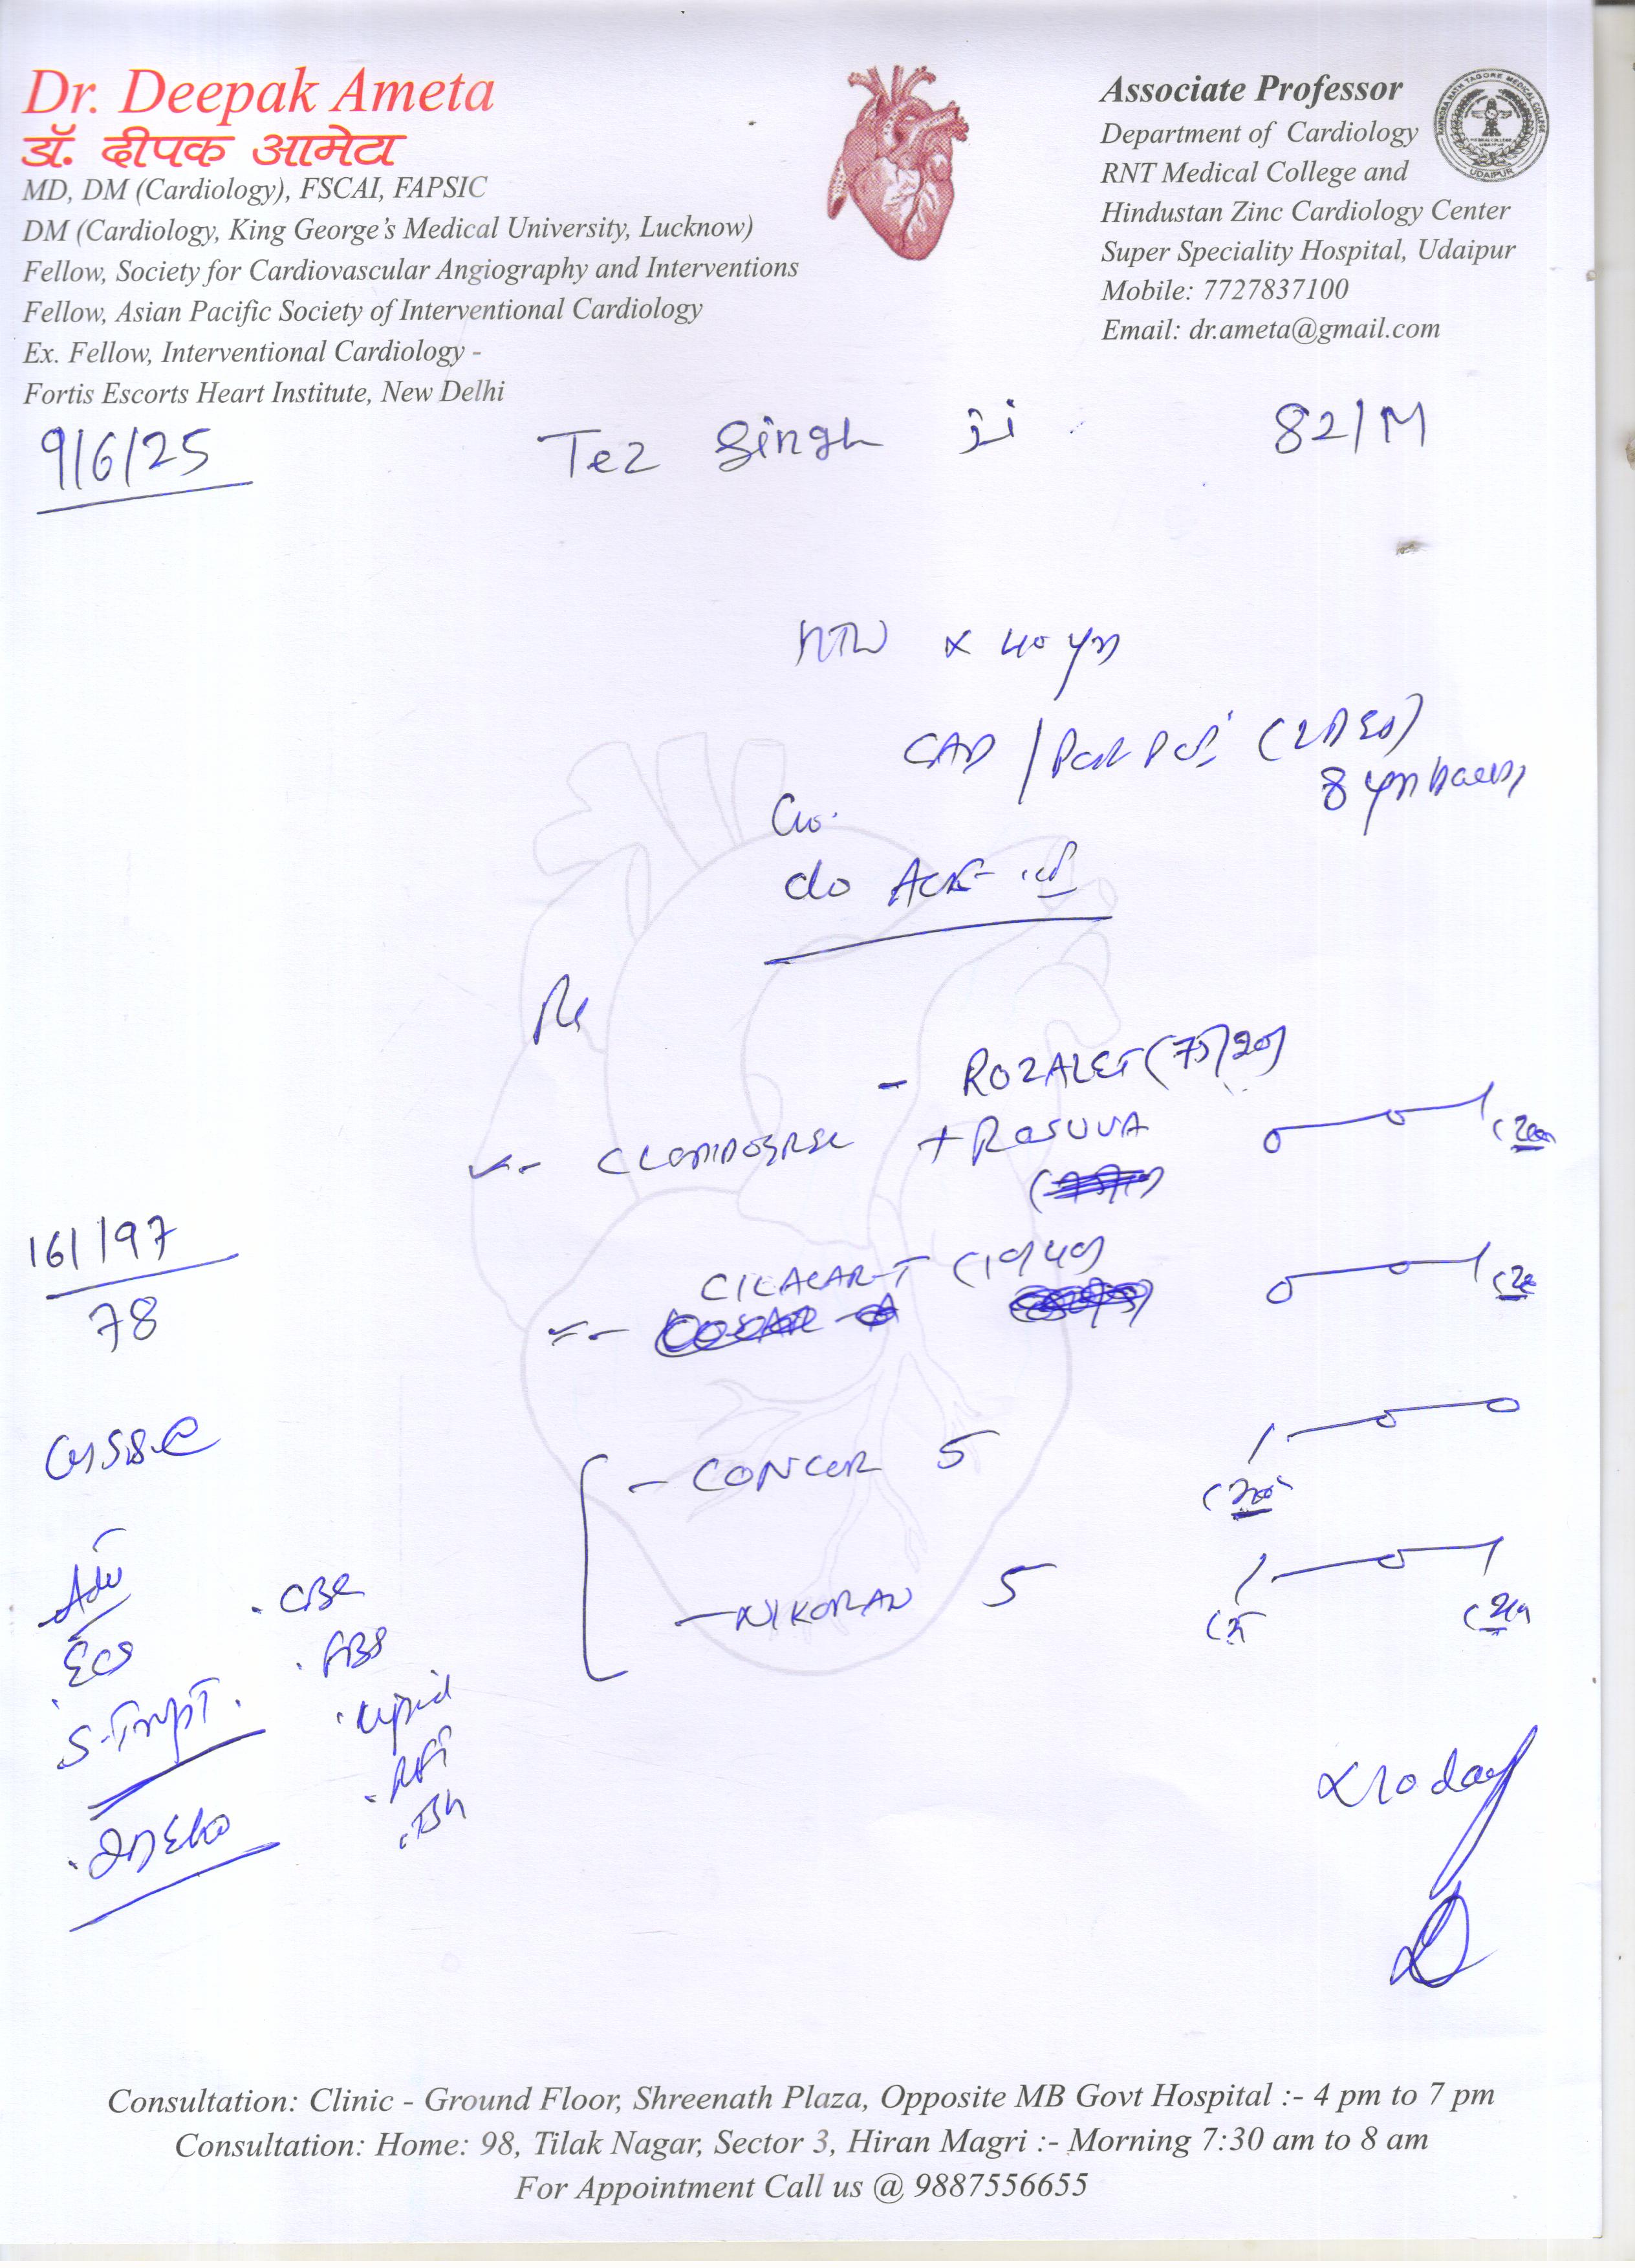 Dr. Deepak Ameta
डॉ. दीपक आमेटा
MD, DM (Cardiology), FSCAI, FAPSIC
DM (Cardiology, King George's Medical University, Lucknow)
Fellow, Society for Cardiovascular Angiography and Interventions
Fellow, Asian Pacific Society of Interventional Cardiology
Ex. Fellow, Interventional Cardiology -
Fortis Escorts Heart Institute, New Delhi
Associate Professor
Department of Cardiology
RNT Medical College and
Hindustan Zinc Cardiology Center
Super Speciality Hospital, Udaipur
Mobile: 7727837100
Email: dr.ameta@gmail.com
RABINDRA NATH TAGORE MEDICAL COLLEGE
UDAIPUR
9/6/25
Tez Singh ji
82/M
HTN x 40 yrs
CAD / Post PCI
8 yrs back
Rx
- ROZALET (75/20)
+ ROSUVA
CILACAR-T (10/40)
- CONCOR 5
- NIKORAN 5
161/97
78
Adv
ECG
S-TropT.
2D Echo
. CBC
. RBS
. Lipid
. RFT
. TSH
x 10 day
Consultation: Clinic - Ground Floor, Shreenath Plaza, Opposite MB Govt Hospital :- 4 pm to 7 pm
Consultation: Home: 98, Tilak Nagar, Sector 3, Hiran Magri :- Morning 7:30 am to 8 am
For Appointment Call us @ 9887556655